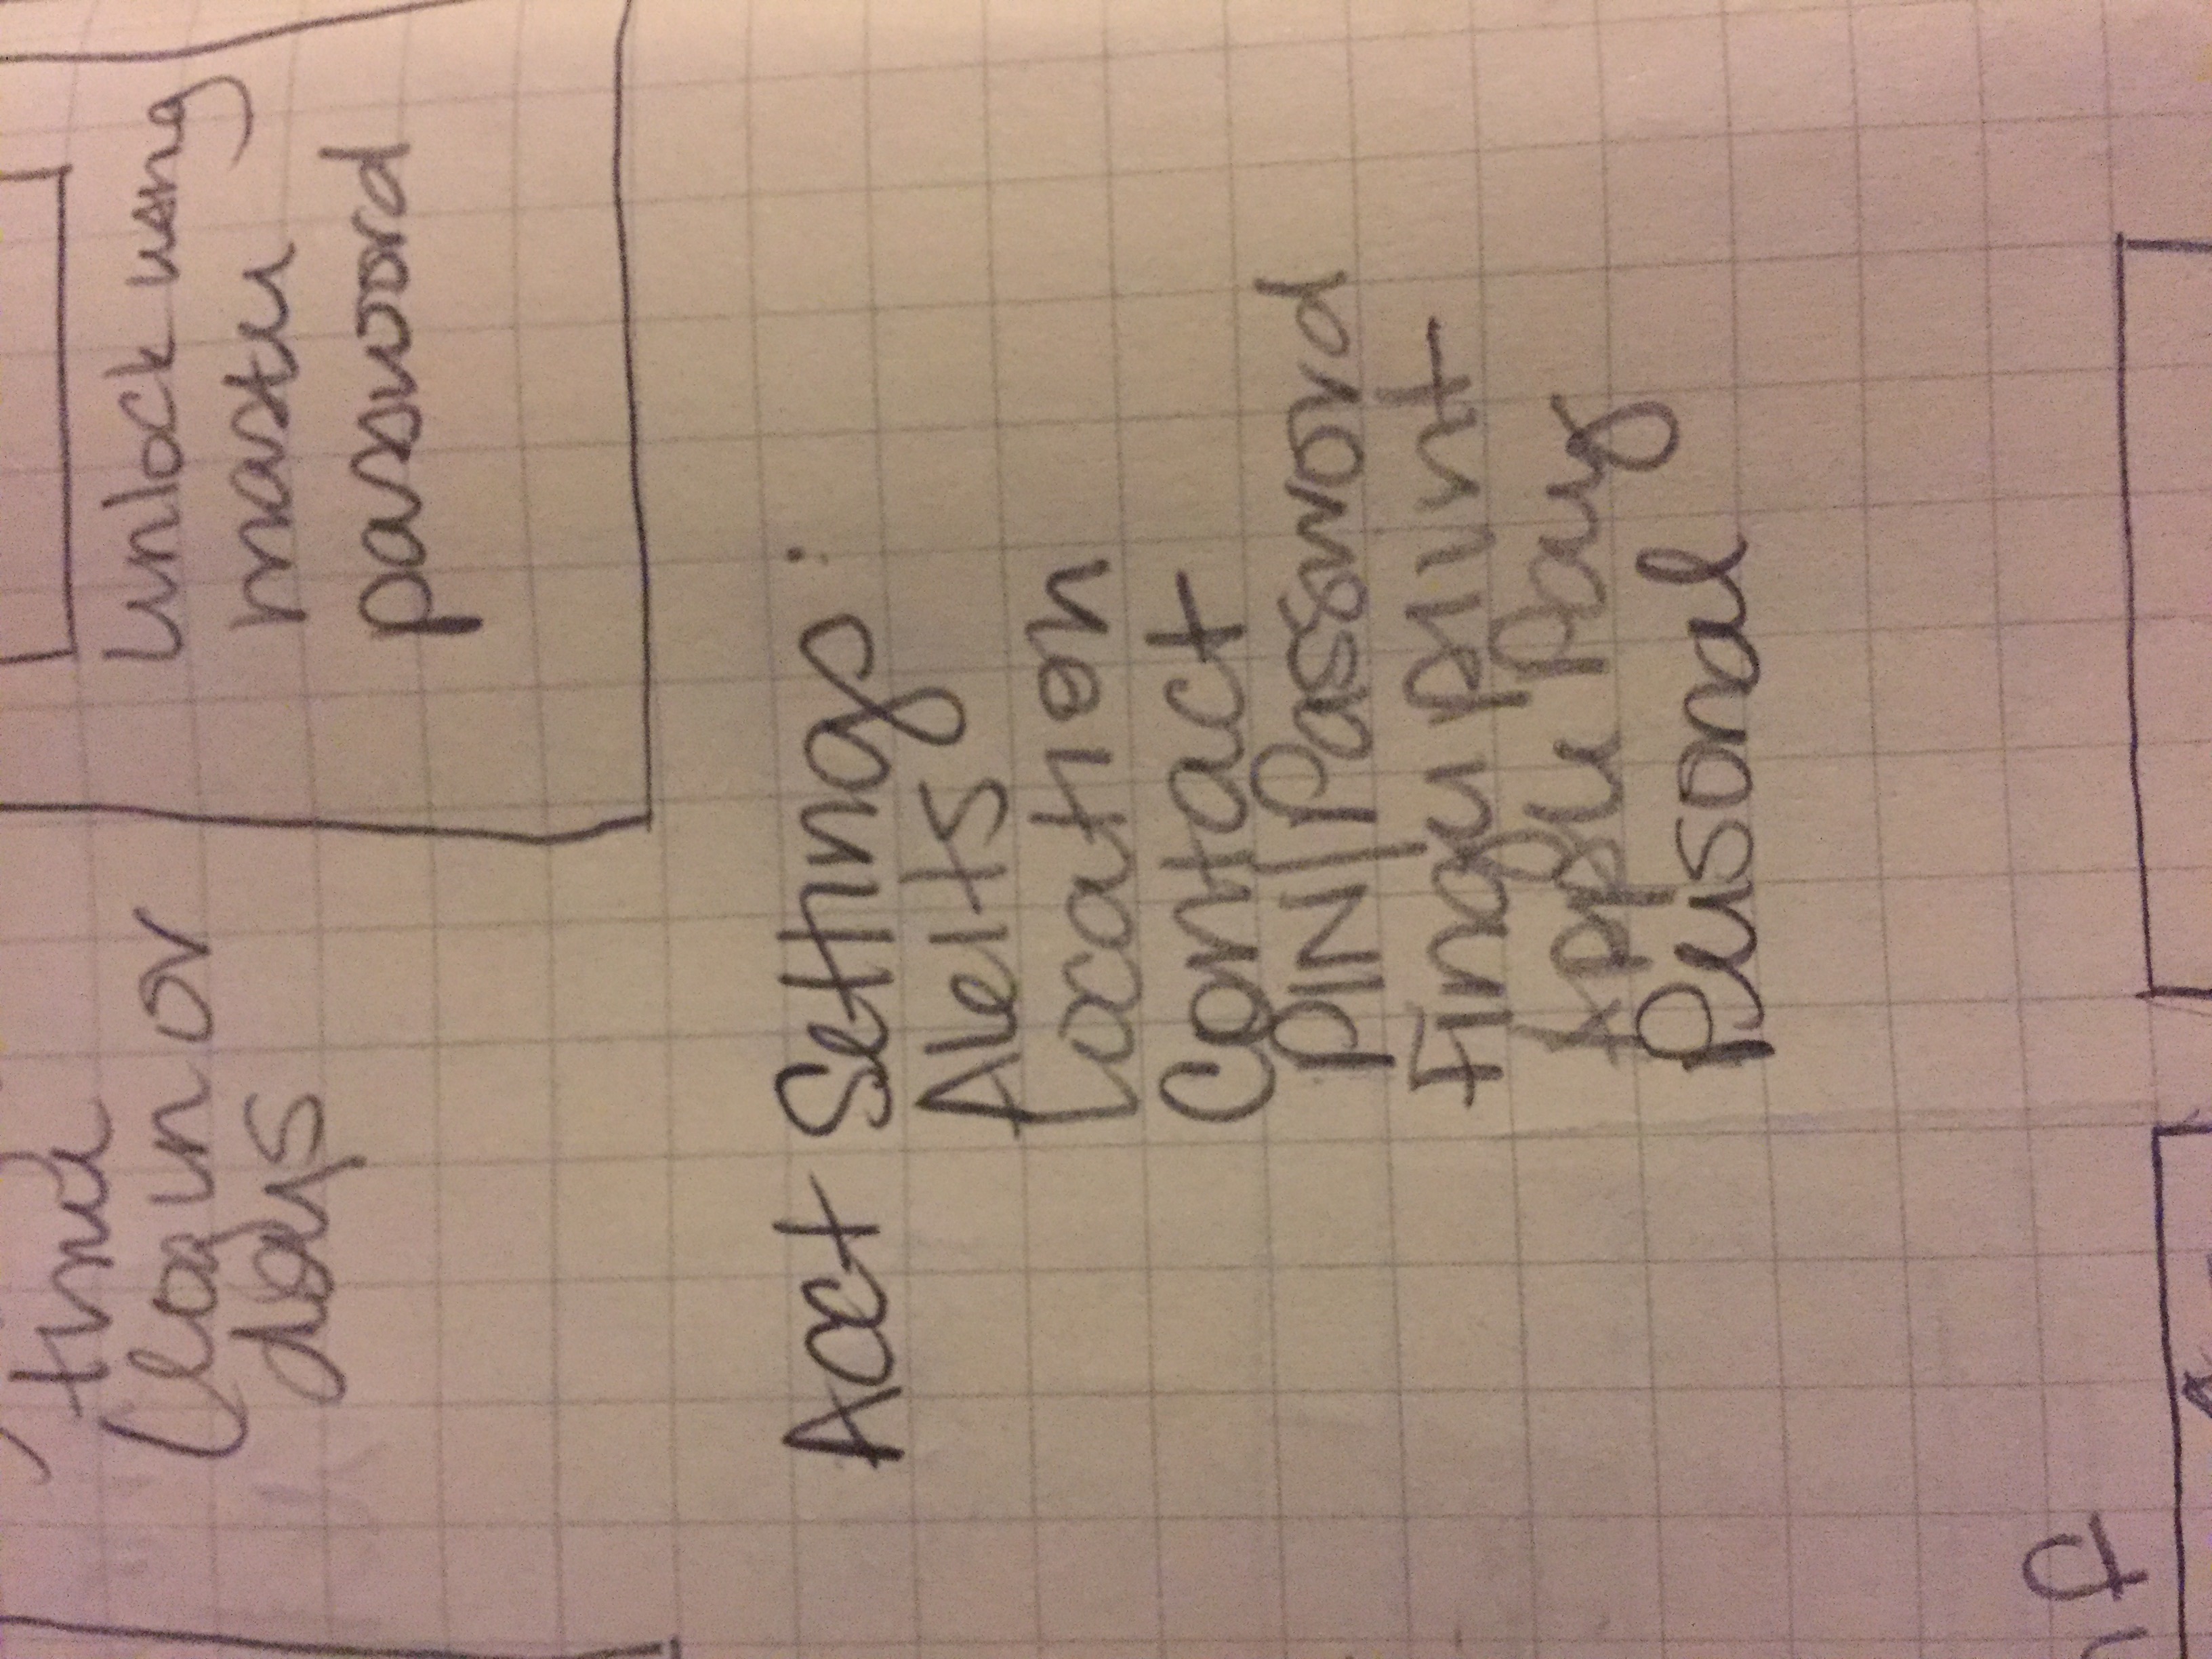 time
(login or
days
unlock using
master
password
Acct Settings:
Alerts
Location
Contact
PIN/Password
Fingerprint
Apple Pay
Personal